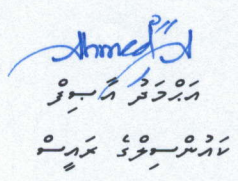 Ahmed A
އަޙްމަދު އާޞިފް
ކައުންސިލްގެ ރައީސް